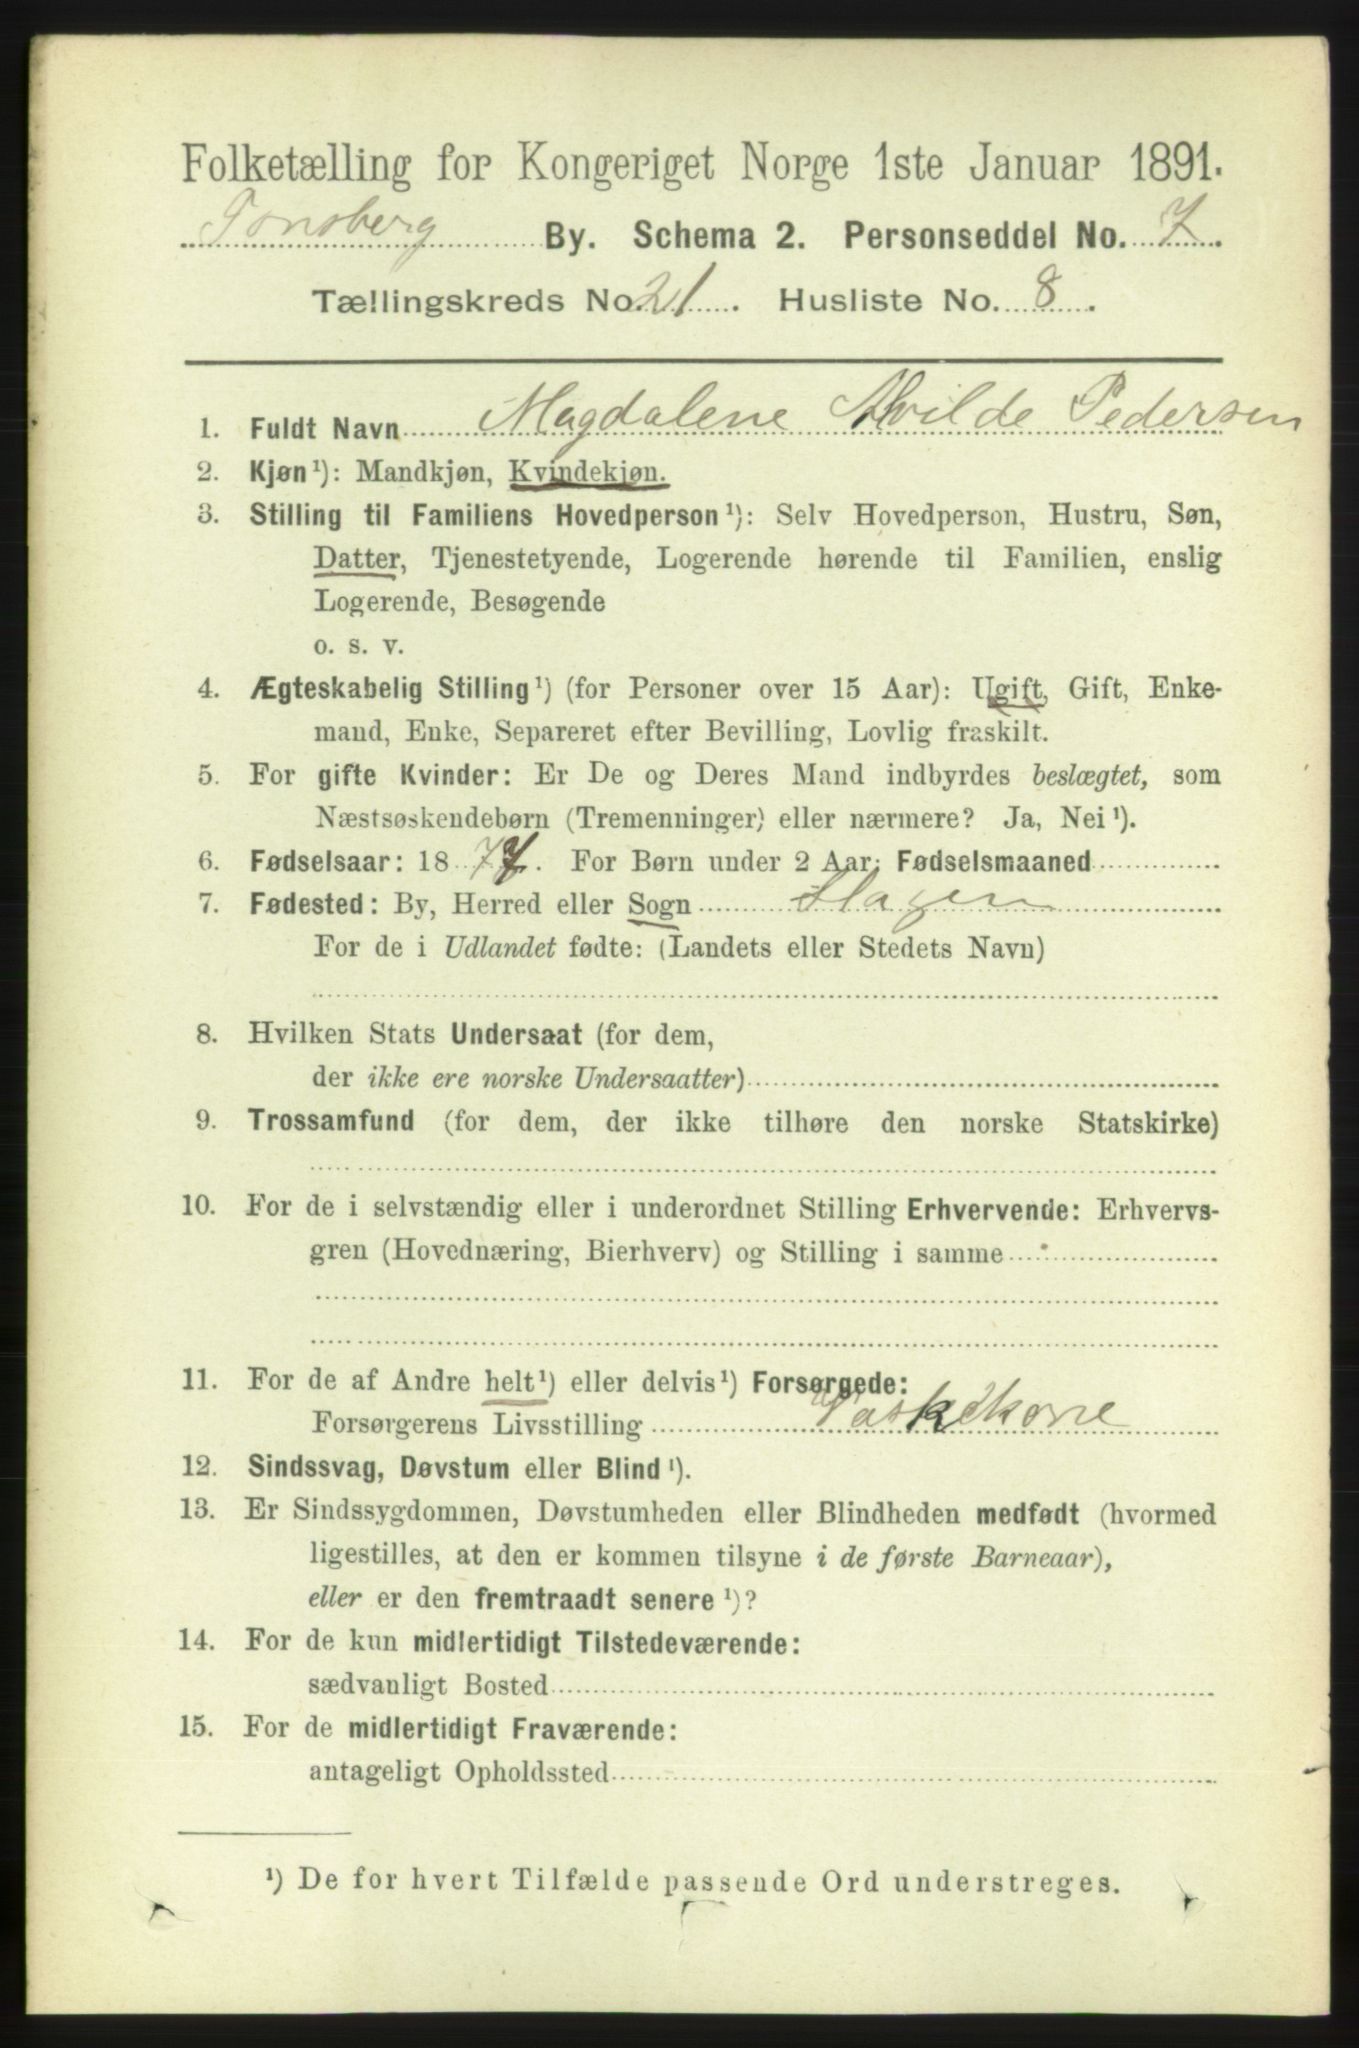 Folketælling for Kongeriget Norge 1ste Januar 1891.
Tønsberg By. Schema 2. Personseddel No. 7.
Tællingskreds No. 21. Husliste No. 8.
1. Fuldt Navn Magdalene Alvilde Pedersen
2. Kjøn¹): Mandkjøn, Kvindekjøn.
3. Stilling til Familiens Hovedperson¹): Selv Hovedperson, Hustru, Søn,
Datter, Tjenestetyende, Logerende hørende til Familien, enslig
Logerende, Besøgende
o. s. v.
4. Ægteskabelig Stilling¹) (for Personer over 15 Aar): Ugift, Gift, Enke-
mand, Enke, Separeret efter Bevilling, Lovlig fraskilt.
5. For gifte Kvinder: Er De og Deres Mand indbyrdes beslægtet, som
Næstsøskendebørn (Tremenninger) eller nærmere? Ja, Nei¹).
6. Fødselsaar: 1877. For Børn under 2 Aar: Fødselsmaaned
7. Fødested: By, Herred eller Sogn Slagen
For de i Udlandet fødte: (Landets eller Stedets Navn)
8. Hvilken Stats Undersaat (for dem,
der ikke ere norske Undersaatter)
9. Trossamfund (for dem, der ikke tilhøre den norske Statskirke)
10. For de i selvstændig eller i underordnet Stilling Erhvervende: Erhvervs-
gren (Hovednæring, Bierhverv) og Stilling i samme
11. For de af Andre helt¹) eller delvis¹) Forsørgede:
Forsørgerens Livsstilling Vaskekone
12. Sindssvag, Døvstum eller Blind¹).
13. Er Sindssygdommen, Døvstumheden eller Blindheden medfødt (hvormed
ligestilles, at den er kommen tilsyne i de første Barneaar),
eller er den fremtraadt senere¹)?
14. For de kun midlertidigt Tilstedeværende:
sædvanligt Bosted
15. For de midlertidigt Fraværende:
antageligt Opholdssted
¹) De for hvert Tilfælde passende Ord understreges.